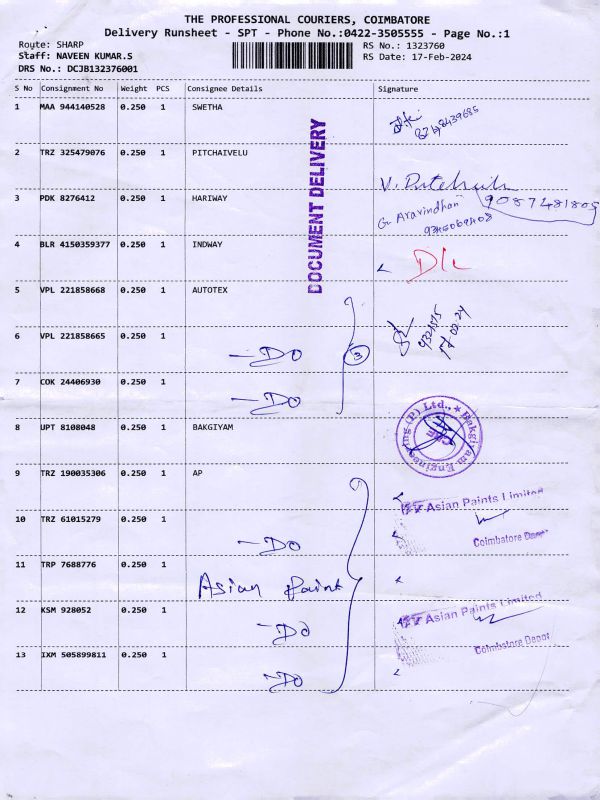 THE PROFESSIONAL COURIERS, COIMBATORE
Delivery Runsheet - SPT - Phone No.:0422-3505555 - Page No.:1
Route: SHARP
Staff: NAVEEN KUMAR.S
DRS No.: DCJB132376001
RS No.: 1323760
RS Date: 17-Feb-2024
S No Consignment No Weight PCS Consignee Details Signature
1 MAA 944140528 0.250 1 SWETHA
2 TRZ 325479076 0.250 1 PITCHAIVELU
3 PDK 8276412 0.250 1 HARIWAY
G. Aravindhan
4 BLR 4150359377 0.250 1 INDWAY
DOCUMENT DELIVERY
5 VPL 221858668 0.250 1 AUTOTEX
6 VPL 221858665 0.250 1 -DO 3
17.02.24
7 COK 24406930 0.250 1 -DO
8 UPT 8108048 0.250 1 BAKGIYAM
Bakgiyam Engineering (P) Ltd.,
9 TRZ 190035306 0.250 1 AP
Asian Paints Limited
10 TRZ 61015279 0.250 1 -DO
Coimbatore Depot
11 TRP 7688776 0.250 1 Asian Paint
12 KSM 928052 0.250 1 -DO
Asian Paints Limited
Coimbatore Depot
13 IXM 505899811 0.250 1 -DO